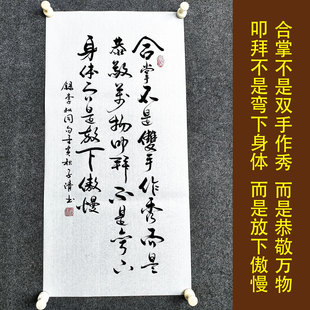 合掌不是雙手作秀而是
恭敬萬物叩拜不是弯下
身体而是放下傲慢
錄李叔同句
合掌不是双手作秀 而是恭敬万物
叩拜不是弯下身体 而是放下傲慢